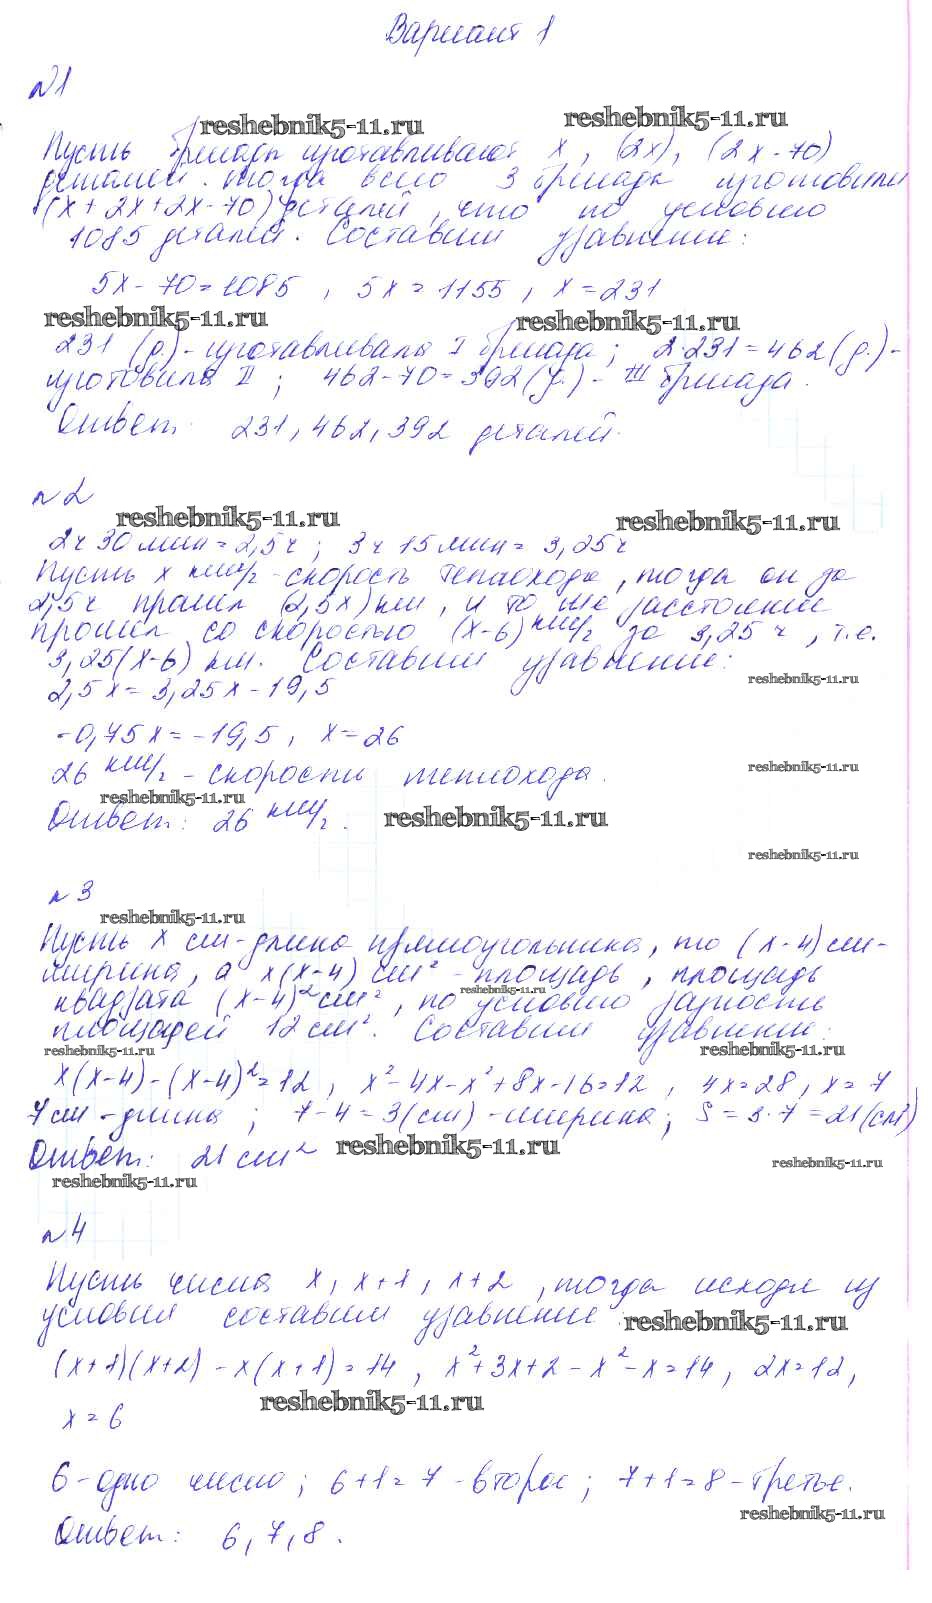 Вариант 1
№1
reshebnik5-11.ru reshebnik5-11.ru
Пусть бригады изготавливают x, (2x), (2x-70)
деталей. тогда всего 3 бригады изготовили
(x+2x+2x-70) деталей, что по условию
1085 деталей. Составим уравнение:
5x-70=1085, 5x=1155, x=231
reshebnik5-11.ru reshebnik5-11.ru
231 (д.)-изготавливала I бригада; 2·231=462(д.)-
изготовила II; 462-70=392(д.)- III бригада.
Ответ: 231, 462, 392 деталей.
№2
reshebnik5-11.ru reshebnik5-11.ru
2ч 30мин=2,5ч; 3ч 15мин=3,25ч
Пусть x км/ч-скорость теплохода, тогда он за
2,5ч прошел (2,5x)км, и то же расстояние
прошел со скоростью (x-6) км/ч за 3,25ч, т.е.
3,25(x-6) км. Составим уравнение:
reshebnik5-11.ru
2,5x=3,25x-19,5
-0,75x=-19,5, x=26
26 км/ч - скорости теплохода.
reshebnik5-11.ru
reshebnik5-11.ru
Ответ: 26 км/ч. reshebnik5-11.ru
reshebnik5-11.ru
№3
reshebnik5-11.ru
Пусть x см-длина прямоугольника, то (x-4)см-
ширина, а x(x-4) см²-площадь, площадь
reshebnik5-11.ru
квадрата (x-4)²см², по условию разность
площадей 12см². Составим уравнение:
reshebnik5-11.ru reshebnik5-11.ru
x(x-4)-(x-4)²=12, x²-4x-x²+8x-16=12, 4x=28, x=7
7см-длина; 7-4=3(см)-ширина; S=3·7=21(см²)
Ответ: 21см² reshebnik5-11.ru
reshebnik5-11.ru
reshebnik5-11.ru
№4
Пусть числа x, x+1, x+2, тогда исходя из
условия составим уравнение: reshebnik5-11.ru
(x+1)(x+2)-x(x+1)=14, x²+3x+2-x²-x=14, 2x=12,
reshebnik5-11.ru
x=6
6-одно число; 6+1=7-второе; 7+1=8-третье.
reshebnik5-11.ru
Ответ: 6, 7, 8.